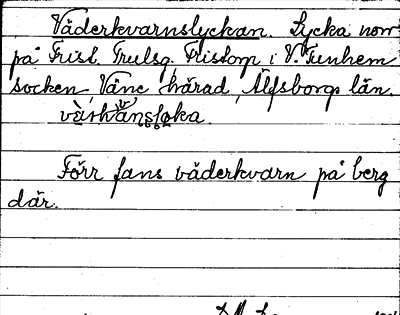 Väderkvarnslyckan. Lycka norr
på Frisl. Trulsg. Fristorp i V. Tunhem
socken, Väne härad, Älfsborgs län.
Förr fans väderkvarn på berg
där.